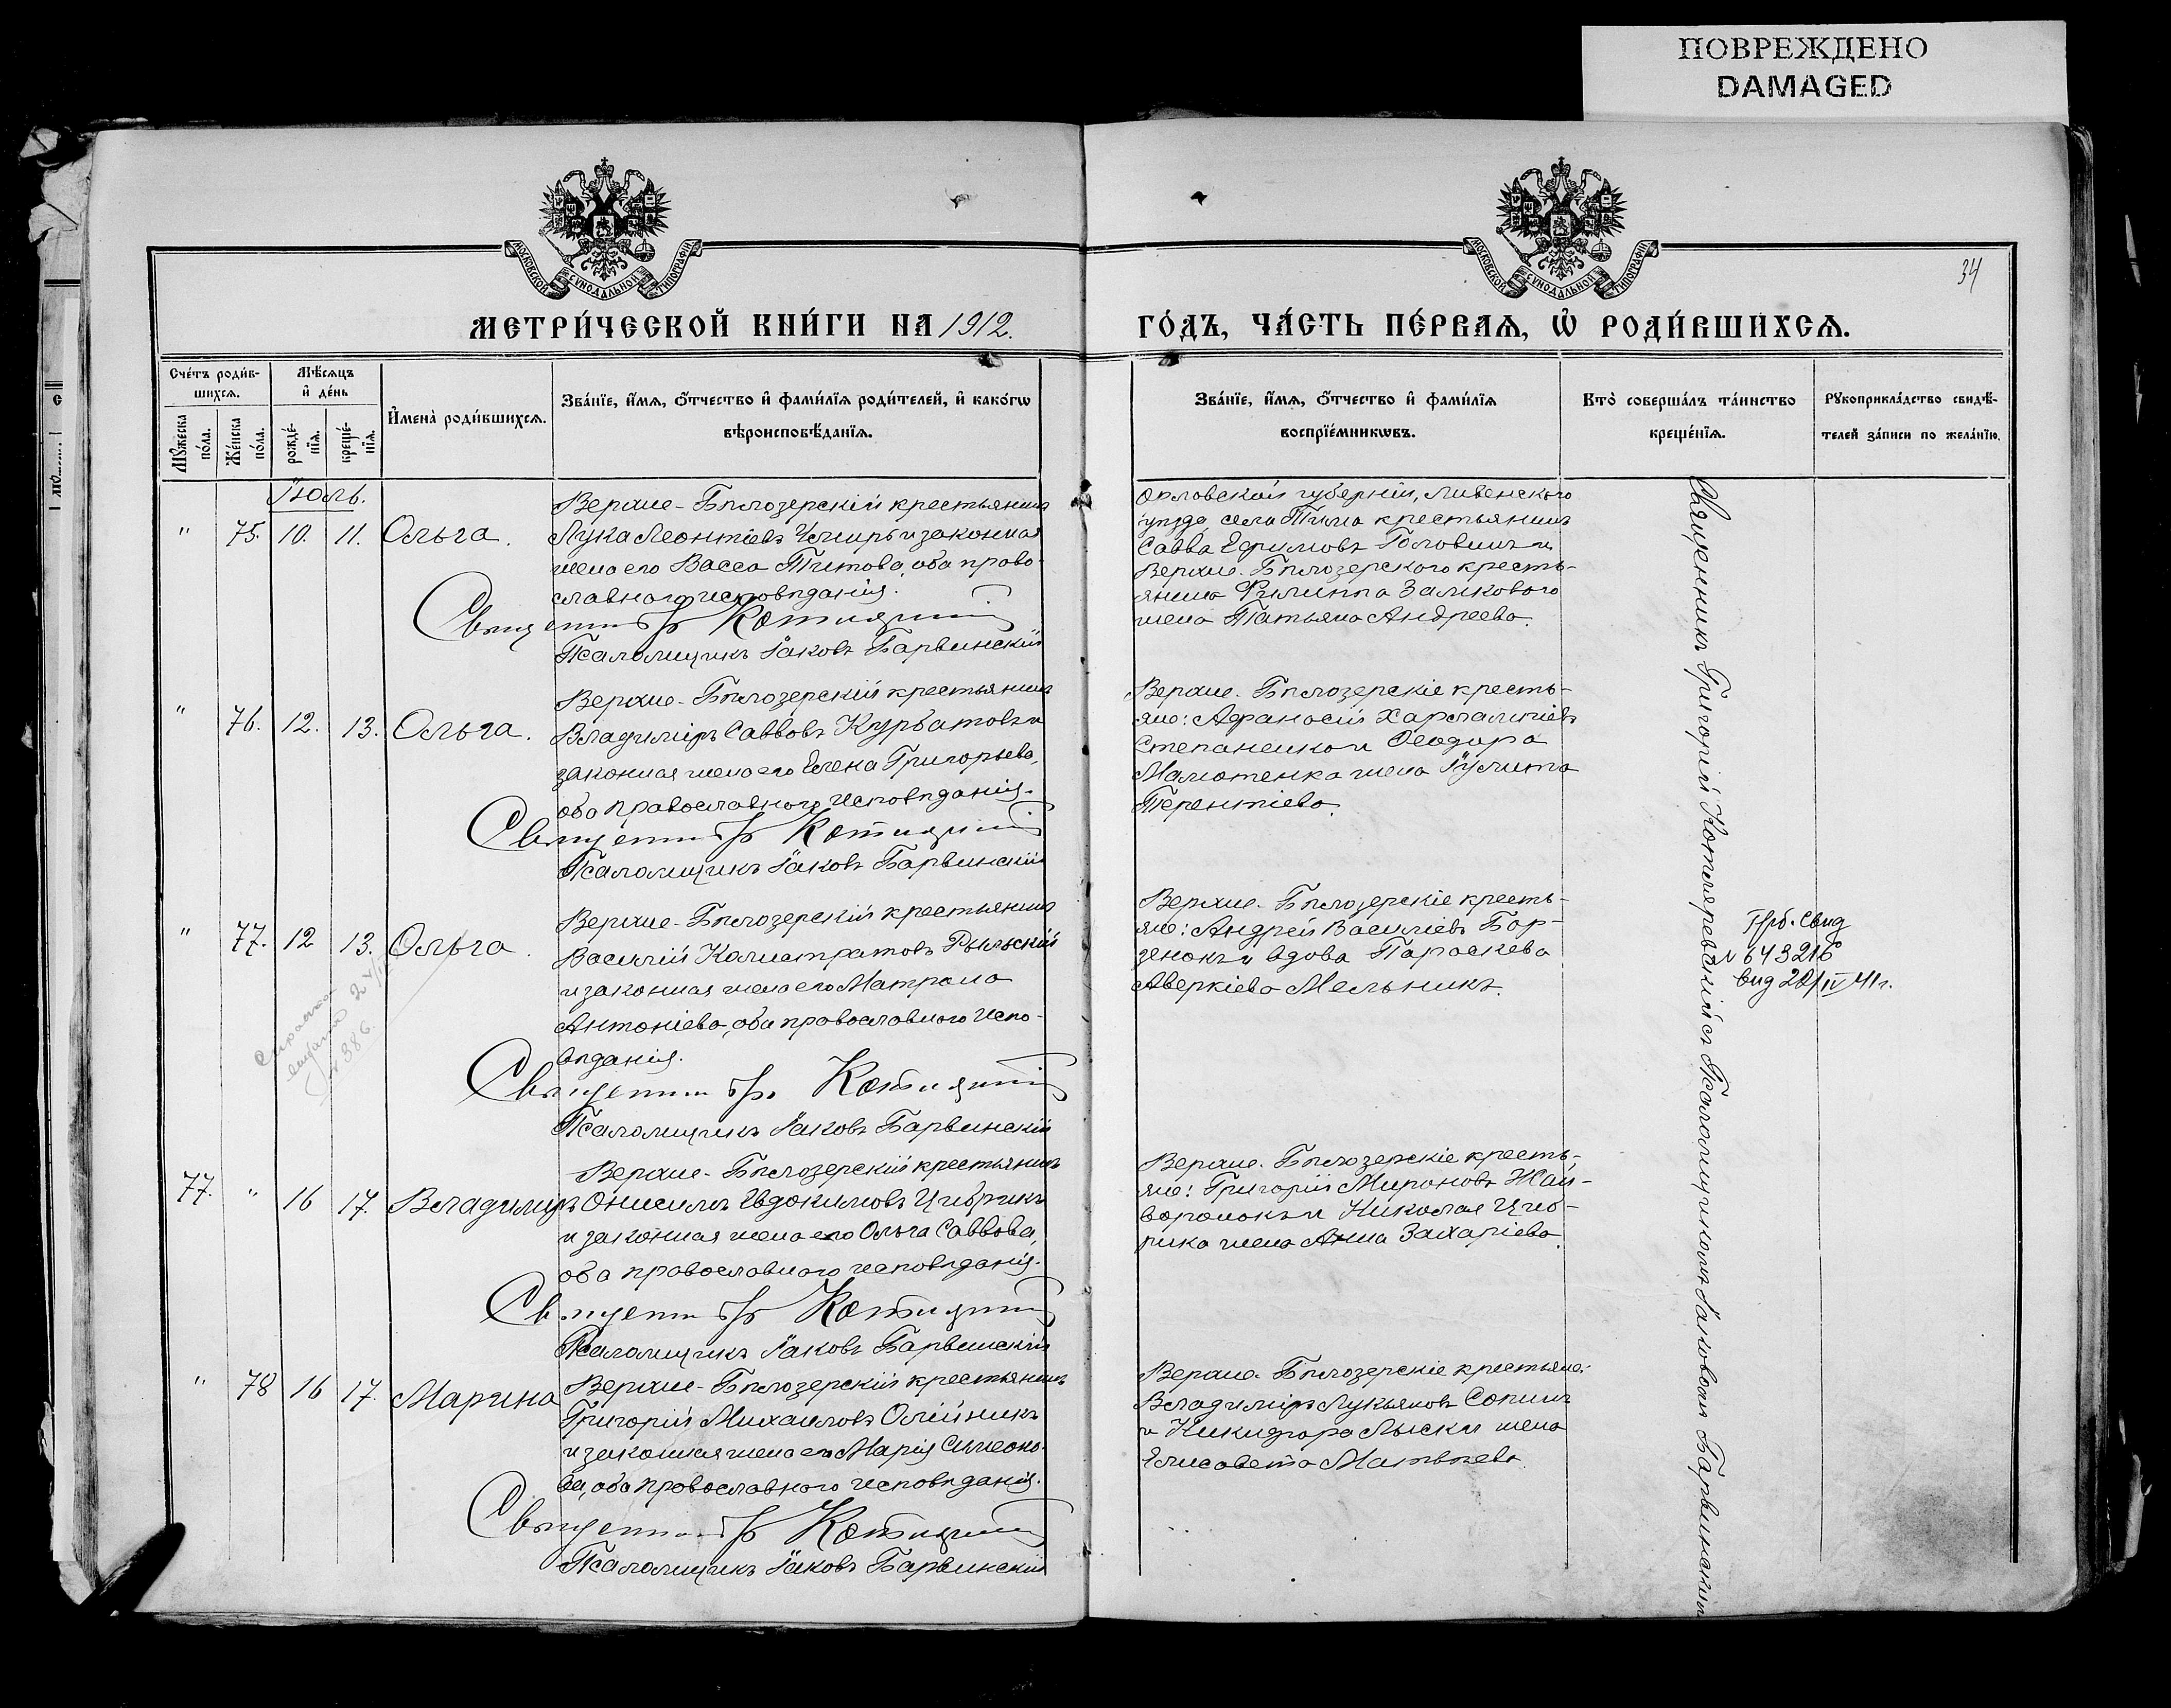 ПОВРЕЖДЕНО
DAMAGED
МОСКОВСКОЙ СѴНОДАЛЬНОЙ ТИПОГРАФІИ
МОСКОВСКОЙ СѴНОДАЛЬНОЙ ТИПОГРАФІИ
34
МЕТРИ́ЧЕСКОЙ КНИ́ГИ НА 1912.
ГО́ДЪ, ЧА́СТЬ ПЕ́РВАѦ, Ѡ҆ РОДИ́ВШИХСѦ.
Сче́тъ роди́в-
шихсѧ.
Мꙋ́жеска по́ла.
Же́нска по́ла.
Мѣ́сѧцъ
и҆ де́нь
рожде́-нїѧ.
креще́-нїѧ.
И҆мена̀ роди́вшихсѧ.
Зва́нїе, и҆́мѧ, ѻ҆́тчество и҆ фами́лїѧ роди́телей, и҆ како́гѡ
вѣроисповѣ́данїѧ.
Зва́нїе, и҆́мѧ, ѻ҆́тчество и҆ фами́лїѧ
воспрїе́мникѡвъ.
Кто̀ соверша́лъ та́инство
креще́нїѧ.
Рꙋкоприкла́дство свидѣ́-
телей за́писи по жела́нїю.
Іюль.
" 75. 10. 11. Ольга.
Верхне-Бѣлозерскій крестьянинъ
Лука Леонтіевъ Чмиръ и законная
жена его Васса Титова, оба право-
славнаго исповѣданія.
Священникъ Гр
Псаломщикъ Іаковъ Барвинскій
Орловской губерніи, Ливенскаго
уѣзда, села Тима крестьянинъ
Савва Ефимовъ Головинъ и
Верхне-Бѣлозерскаго кресть-
янина Филиппа Заиковаго
жена Татьяна Андреева.
" 76. 12. 13. Ольга.
Верхне-Бѣлозерскій крестьянинъ
Владиміръ Саввовъ Курбатовъ и
законная жена его Елена Григорьева,
оба православнаго исповѣданія.
Священникъ Гр
Псаломщикъ Іаковъ Барвинскій
Верхне-Бѣлозерскіе кресть-
яне: Афанасій Харлампіевъ
Степаненко и Ѳеодора
Маліотенка жена Іулита
Терентіева.
" 77. 12 13. Ольга.
Верхне-Бѣлозерскій крестьянинъ
Василій Калистратовъ Рыльскій
и законная жена его Матрона
Антоніева, оба православнаго испо-
вѣданія.
Священникъ Гр.
Псаломщикъ Іаковъ Барвинскій
Верхне-Бѣлозерскіе кресть-
яне: Андрей Василіевъ Бор-
денокъ и вдова Параскева
Аверкіева Мельникъ.
№ 386
Свид
№ 643216
вид 20/IV 41 г.
77. " 16 17. Владиміръ
Верхне-Бѣлозерскій крестьянинъ
Онисимъ Евдокимовъ Цибрикъ
и законная жена его Ольга Саввова,
оба православнаго исповѣданія.
Священникъ Гр
Псаломщикъ Іаковъ Барвинскій
Верхне-Бѣлозерскіе кресть-
яне: Григорій Мироновъ Жай-
воронокъ и Николая Циб-
рика жена Анна Захаріева.
" 78 16 17. Марина
Верхне-Бѣлозерскій крестьянинъ
Григорій Михаиловъ Олійникъ
и законная жена его Марія Симеоно-
ва, оба православнаго исповѣданія.
Священникъ Гр
Псаломщикъ Іаковъ Барвинскій
Верхне-Бѣлозерскіе крестьяне:
Владиміръ Лукьяновъ Сопинъ
и Никифора Лыски жена
Елисавета Матвѣева
Священникъ Григорій Котляревскій съ Псаломщикомъ Іаковомъ Барвинскимъ